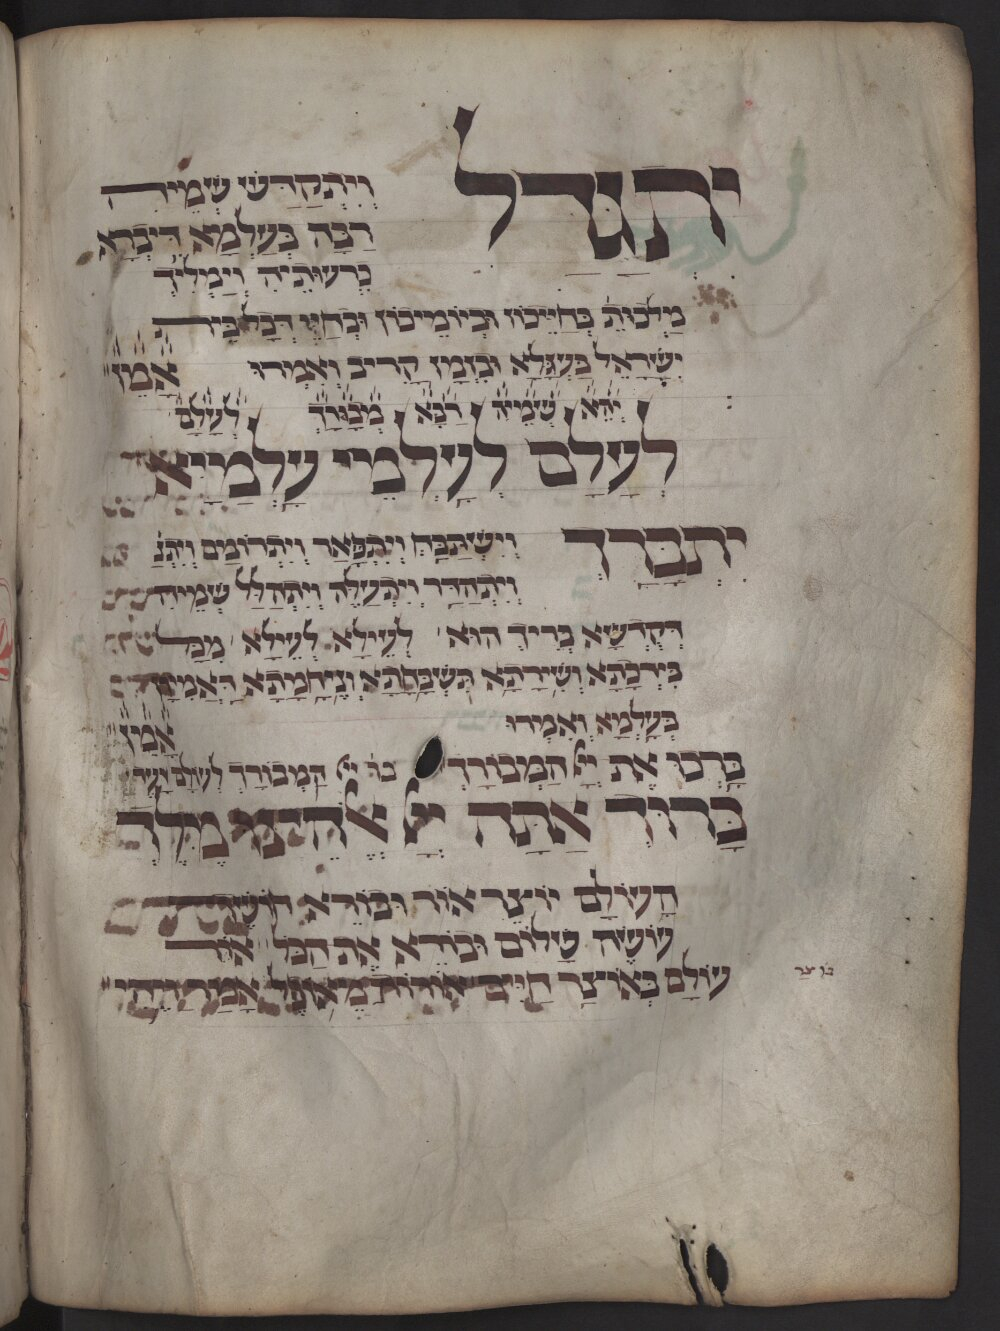 יִתְגַּדַּל וְיִתְקַדַּשׁ שְׁמֵיהּ
רַבָּה בְּעָלְמָא דִּיבְרָא
כִרְעוּתֵיהּ וְיַמְלִיךְ
מַלְכוּתֵהּ בְּחַיֵּיכוֹן וּבְיוֹמֵיכוֹן וּבְחַיֵּי דְכָל בֵּית
יִשְׂרָאֵל בַּעֲגָלָא וּבִזְמַן קָרִיב וְאִמְרוּ אָמֵן
יְהֵא שְׁמֵיהּ רַבָּא מְבָרַךְ לְעָלַם
לְעָלַם לְעָלְמֵי עָלְמַיָּא
יִתְבָּרַךְ וְיִשְׁתַּבַּח וְיִתְפָּאַר וְיִתְרוֹמַם וְיִתְנַ
וְיִתְהַדַּר וְיִתְעַלֶּה וְיִתְהַלַּל שְׁמֵיהּ
דְּקֻדְשָׁא בְּרִיךְ הוּא לְעֵילָּא לְעֵילָּא מִכָּל
בִּירְכָתָא וְשִׁירָתָא תֻּשְׁבְּחָתָא וְנֶיחָמָתָא דַּאֲמִירָן
בְּעָלְמָא וְאִמְרוּ אָמֵן
בָּרְכוּ אֶת יְיָ הַמְבוֹרָךְ בר' יְיָ הַמְבוֹרָךְ לְעוֹלָם וָעֶד
בָּרוּךְ אַתָּה יְיָ אֱלֹהֵינוּ מֶלֶךְ
הָעוֹלָם יוֹצֵר אוֹר וּבוֹרֵא חוֹשֶׁךְ
עוֹשֶׂה שָׁלוֹם וּבוֹרֵא אֶת הַכֹּל אוֹר
עוֹלָם בְּאוֹצַר חַיִּים אוֹרוֹת מֵאוֹפֶל אָמַר וַיֶּהִי